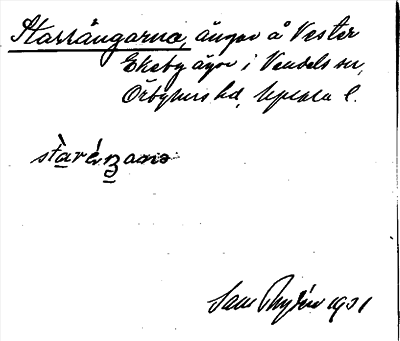 Starrängarna, ängar å Vester
Ekeby ägor i Vendels sn,
Örbyhus hd, Upsala l.
stàréŋana
Sam 1931